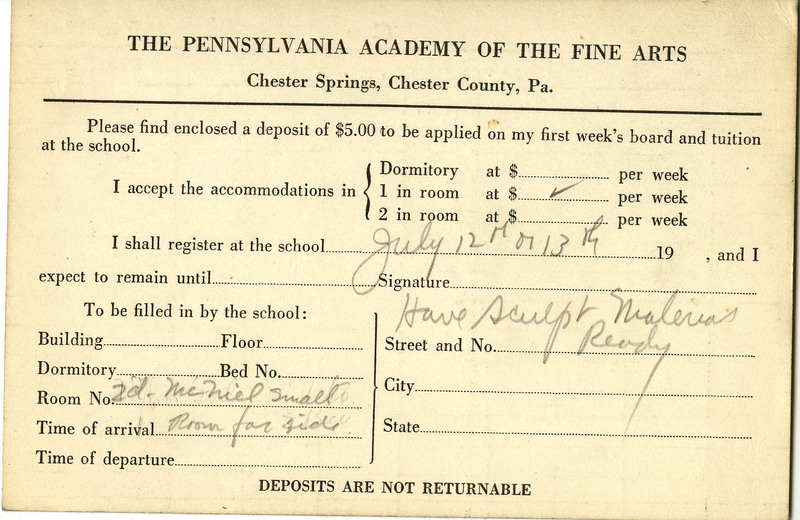 THE PENNSYLVANIA ACADEMY OF THE FINE ARTS
Chester Springs, Chester County, Pa.
Please find enclosed a deposit of $5.00 to be applied on my first week's board and tuition
at the school.
I accept the accommodations in
Dormitory at $ per week
1 in room at $ ✓ per week
2 in room at $ per week
I shall register at the school July 12th or 13th 19 , and I
expect to remain until Signature
To be filled in by the school:
Have Sculpt. Materials
Ready
Building Floor
Street and No.
Dormitory Bed No.
City
Room No. 2d. McNiel small
Time of arrival Room far side.
State
Time of departure
DEPOSITS ARE NOT RETURNABLE